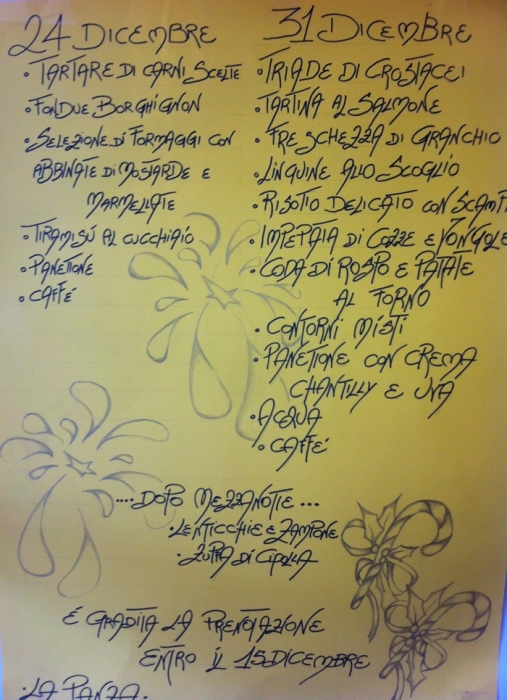 24 DICEMBRE
• TARTARE DI CARNI SCELTE
• FONDUE BORGHIGNON
• SELEZIONE DI FORMAGGI CON
ABBINATE DI MOSTARDE E
MARMELLATE
• TIRAMISÚ AL CUCCHIAIO
• PANETTONE
• CAFFÉ
31 DICEMBRE
• TRIADE DI CROSTACEI
• TARTINA AL SALMONE
• FRESCHEZZA DI GRANCHIO
• LINGUINE ALLO SCOGLIO
• RISOTTO DELICATO CON SCAMPI
• IMPEPATA DI COZZE E VONGOLE
• CODA DI ROSPO E PATATE
AL FORNO
• CONTORNI MISTI
• PANETTONE CON CREMA
CHANTILLY E UVA
• ACQUA
• CAFFÉ
.... DOPO MEZZANOTTE ...
• LENTICCHIE E ZAMPONE
• ZUPPA DI CIPOLLA
É GRADITA LA PRENOTAZIONE
ENTRO IL 15 DICEMBRE
• LA PANZA •